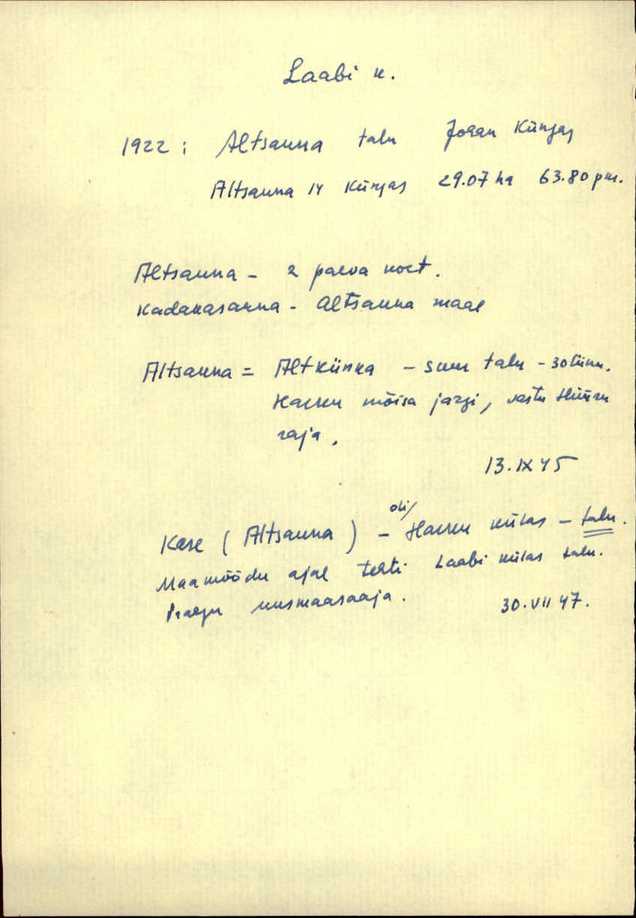 Laabi k.
1922: Altsauna talu Joann Künnas
Altsauna 14 Künnas 29.07 ha 63.80 pm.
Altsauna - 2 päeva koht.
Kadakasauna - Altsauna maal
Altsauna = Altkünka - suur talu - 30 tünn.
Harku mõisa järgi, vastu Hüüru
raja.
13.IX 45
Kase (Altsauna) - oli/ Harku külas - talu.
Maamõõdu ajal tehti Laabi külas talu.
Praegu uusmaasaaja. 30.VII 47.